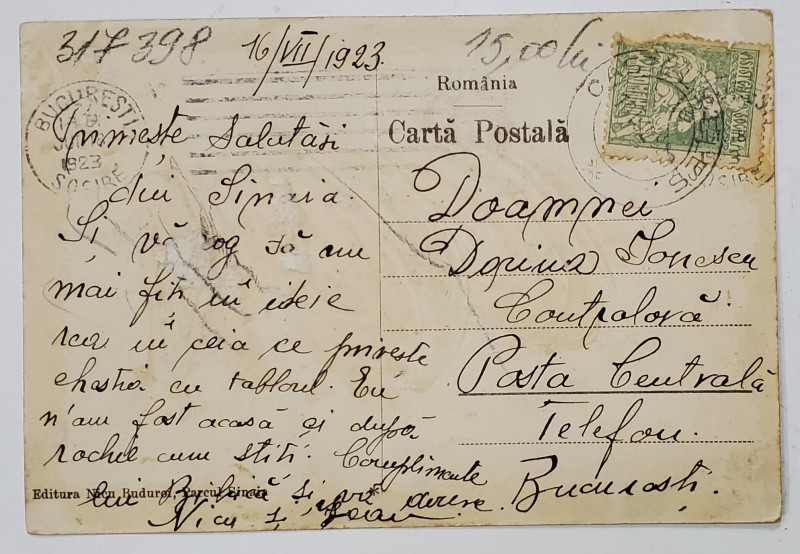 317398
16/VII/1923.
15,00 lei
România
Cartă Postală
BUCUREȘTI
1923
SOSIRE
Primește Salutări
din Sinaia.
Și vă rog să nu
mai fiți în ideie
rea în ceia ce privește
chestia cu tabloul. Eu
n'am fost acasă și după
rochie cum stiți. Complimente
lui și vă
Nicu
Doamnei
Dorina Ionescu
Controloră
Posta Centrală
Telefon.
București.
Editura Nicu Buduroi, Parcul Sinaia